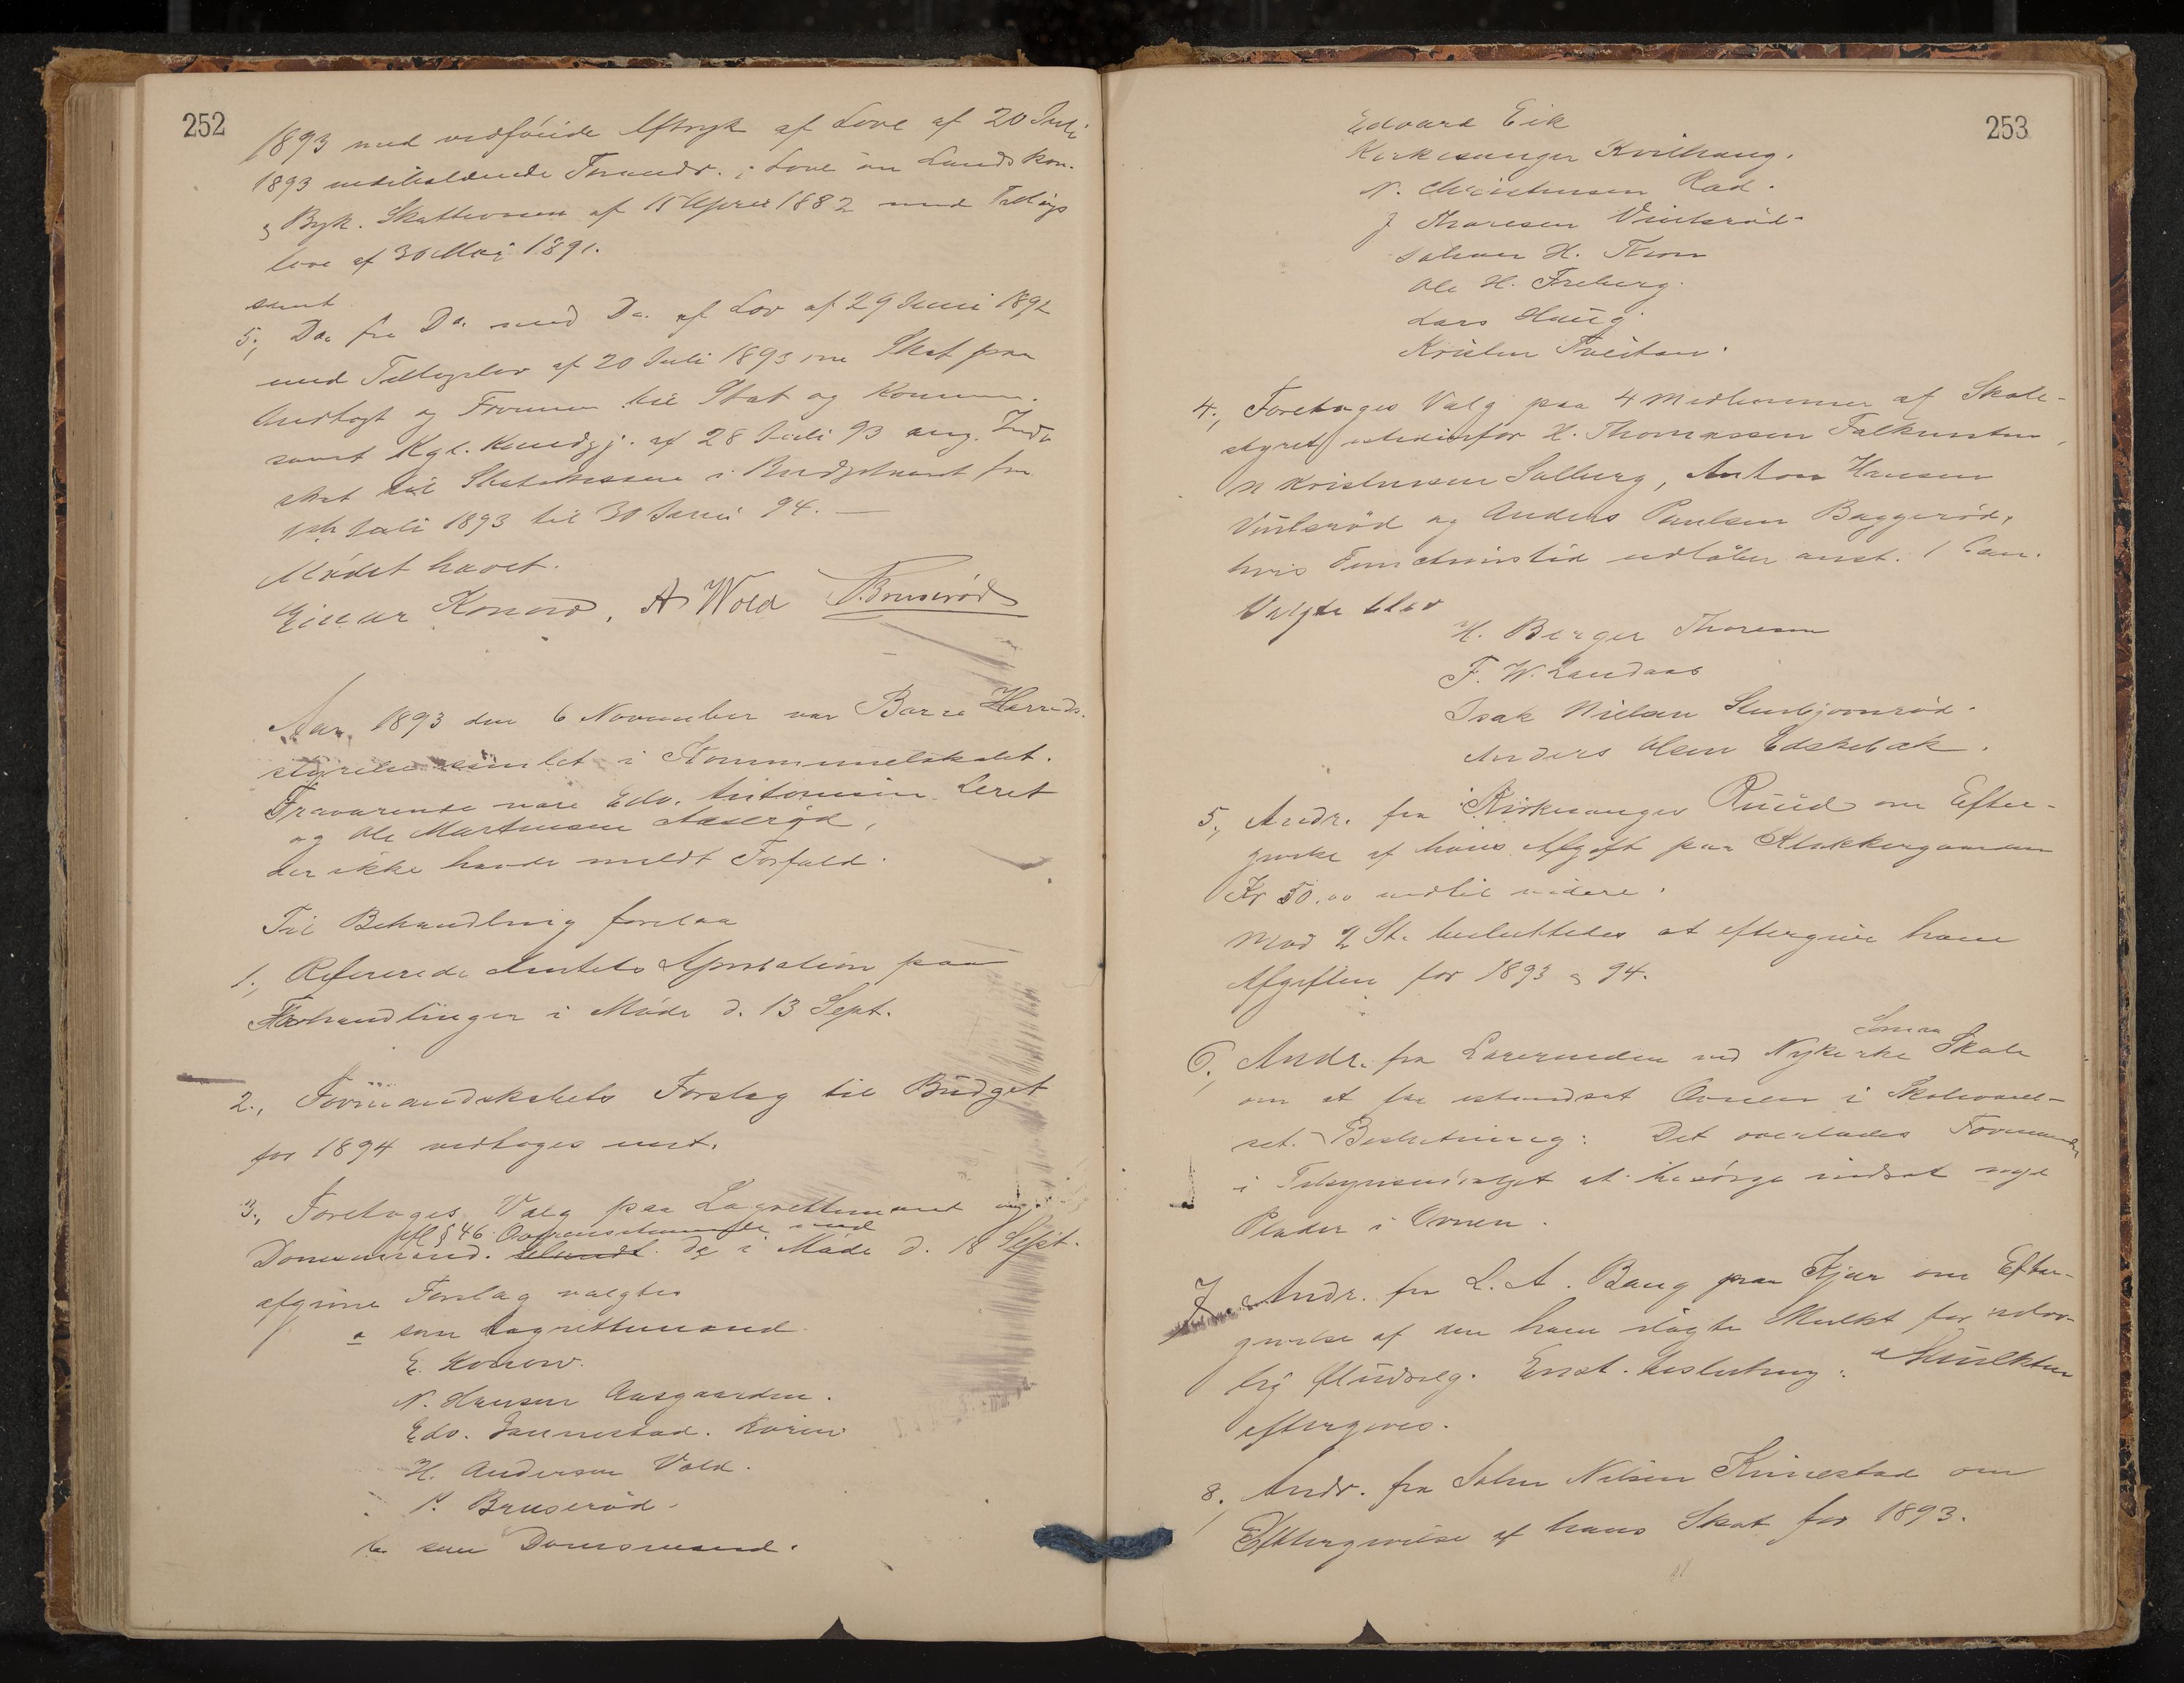 252
1893 med vedføiede Aftryk af Love af 20 Juli
1893 indeholdende Forandr. i Love om Landskom.
og Byk. Skattevæsen af 15 April 1882 med Tillægs
love af 30 Mai 1891.
samt
5., Do. fra Do. med Do. af Lov af 29 Juni 1892
med Tillægslov af 20 Juli 1893 om Skat paa
Indtægt og Formue til Stat og Kommune
samt Kgl. Kundgj. af 28 Juli 93 ang. Indt.
skat til Statskassen i Budgetaaret fra
1ste Juli 1893 til 30 Juni 94. —
Mødet hævet.
Einar Konow, A Wold P. Bruserød
Aar 1893 den 6 November var Borre Herreds-
styrelse samlet i Kommunelokalet.
Fraværende vare Edv. Antonsen Leret
og Ole Martinsen Aaserød,
der ikke havde meldt Forfald.
Til Behandling forelaa
1., Refererede Amtets Approbation paa
Forhandlinger i Møde d. 13 Sept.
2., Formandskabets Forslag til Budget
for 1894 vedtoges enst.
3., Foretoges Valg paa Lagrettemænd og
ifl § 46. Overensstemmelse med
Domsmænd. de i Møde d. 18 Sept.
afgivne Forslag valgtes
a som Lagrettemænd
E. Konow.
N. Hansen Aasgaarden.
Edv. Jannestad.
H. Andersen Vold.
P. Bruserød.
b som Domsmænd.
253
Edvard Eik
Kirkesanger Kvilhaug.
N. Christensen Rød.
J Thoresen Vintsrød.
Johan H.
Ole H. Freberg.
Lars Haug
Kristen Tveitan.
4., Foretoges Valg paa 4 Medlemmer af Skole-
styret istedenfor H. Thomassen Falkensten,
N Kristensen Solberg, Anton Hansen
Vintsrød og Anders Paulsen Baggerød,
hvis Functionstid udløber anst. 1 Jan.
Valgte blev
H. Berger Thoresen
F. W. Landaas
Isak Nielsen Stenbjørnrød.
Anders Olsen Edskebæk.
5., Andr. fra Kirkesanger Ruud om Efter-
givelse af hans Afgift paa Klokkergaarden
Kr 50.00 indtil videre.
Mod 2 St. besluttedes at eftergive ham
Afgiften for 1893 og 94.
6., Andr. fra Lærerinden ved Nykirke Skole
om at faa istandsat Ovnen i Skoleværel-
set. Beslutning: Det overlades Formanden
i Tilsynsudvalget at besørge indsat nye
Plader i Ovnen.
7. Andr. fra L. A. Bang paa Kjær om Efter-
givelse af den ham ilagte Mulkt for ulov-
lig Øludsalg. Enst. beslutning: Mulkten
eftergives.
8., Andr. fra Johan Nilsen Knivestad om
Eftergivelse af hans Skat for 1893.